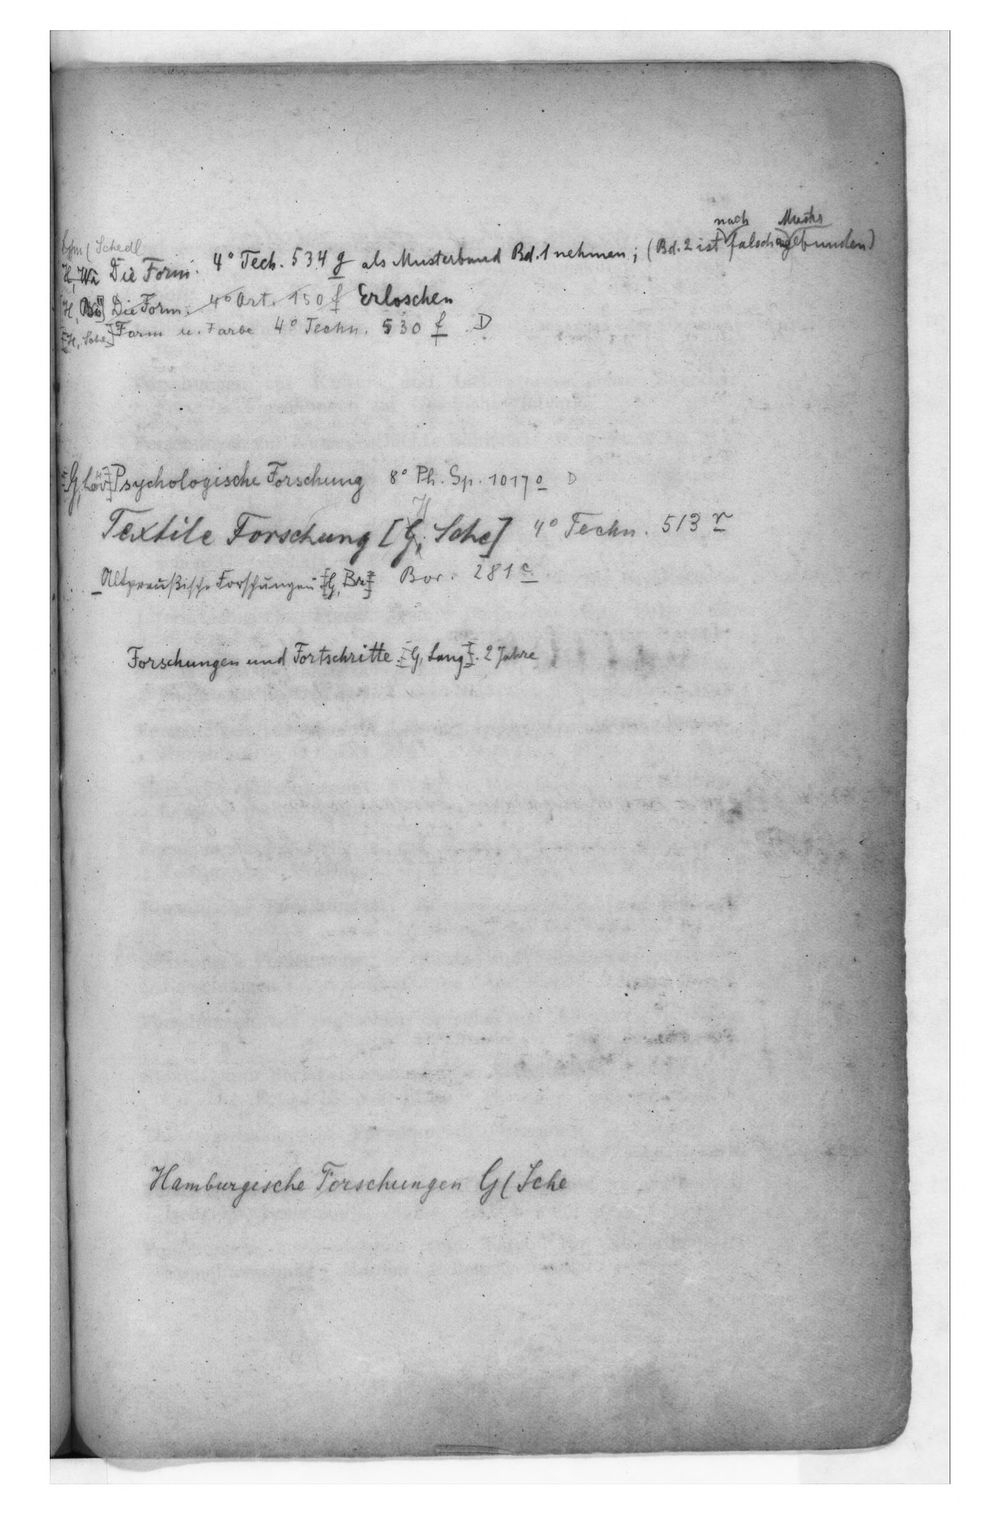 (Schedl
nach Muster
H, Wa Die Form. 4° Tech. 534 g als Musterband Bd. 1 nehmen; (Bd. 2 ist falsch gebunden)
[H, Bö] Die Form. 4° Art. 150 f Erloschen
[H, Sche] Form u. Farbe 4° Techn. 530 f D
[G, Löv] Psychologische Forschung 8° Ph. Sp. 1017 o D
H
Textile Forschung [G, Sche] 4° Techn. 513 r
Altpreußische Forschungen [G, Br] Bor. 281 c
Forschungen und Fortschritte [G, Lang]. 2 Jahre
Hamburgische Forschungen G ( Sche